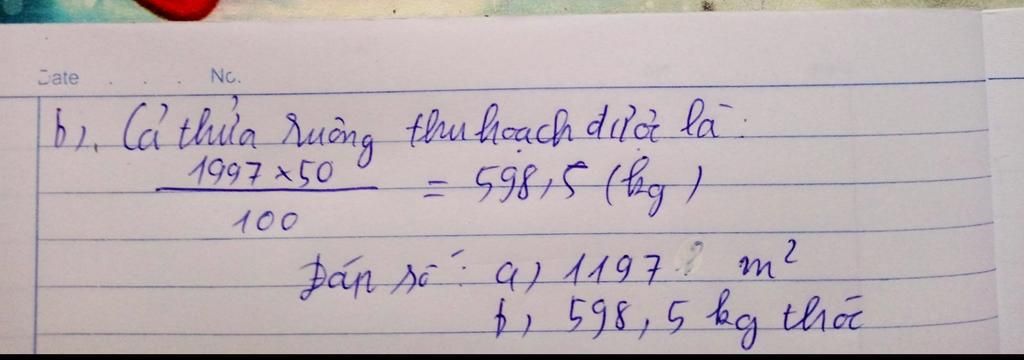 Date . . . No.
b). Cả thửa ruộng thu hoạch được là:
1997 x 50
100
= 598,5 (kg)
Đáp số: a) 1197 m²
b) 598,5 kg thóc